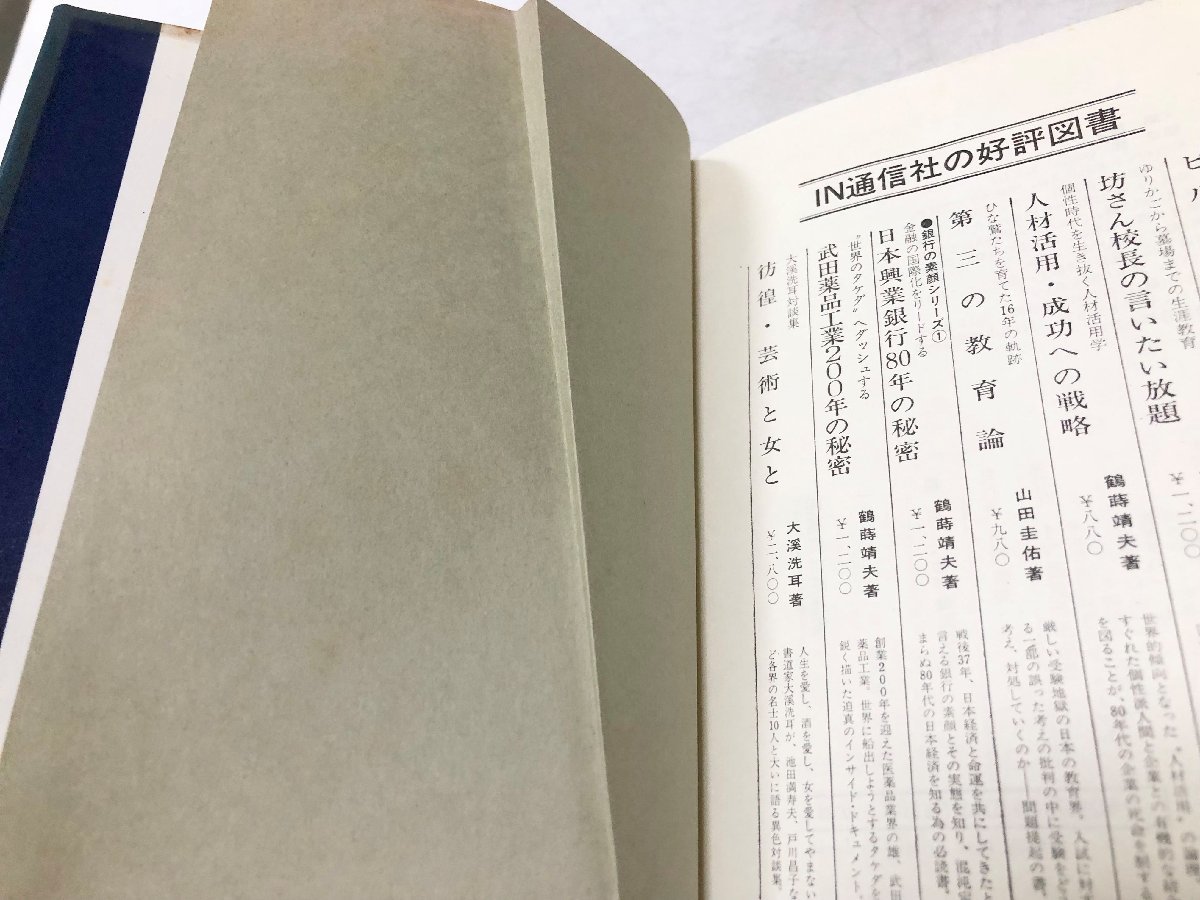 IN通信社の好評図書
ゆりかごから墓場までの生涯教育
坊さん校長の言いたい放題
鶴蒔靖夫著
個性時代を生き抜く人材活用学
人材活用・成功への戦略
鶴蒔靖夫著
¥八八〇
世界的傾向となった〝人材活用〟の
すぐれた個性派人間と企業との有機的な結
を図ることが、80年代の企業の死命を制する
ひな鷲たちを育てた16年の軌跡
第三の教育論
山田圭佑著
¥九八〇
厳しい受験地獄の日本の教育界。入試に対
る一般の誤った考えの批判の中に受験をどう
考え、対処していくのか——問題提起の書。
●銀行の素顔シリーズ①
金融の国際化をリードする
日本興業銀行80年の秘密
鶴蒔靖夫著
¥一、二〇〇
戦後37年、日本経済と命運を共にしてきたと
言える銀行の素顔とその実態を知り、混沌
まらぬ80年代の日本経済を知る為の必読書。
〝世界のタケダ〟へダッシュする
武田薬品工業200年の秘密
鶴蒔靖夫著
¥一、二〇〇
創業200年を迎えた医薬品業界の雄、武田
薬品工業。世界に船出しようとするタケダを
鋭く描いた迫真のインサイド・ドキュメント。
大溪洗耳対談集
彷徨・芸術と女と
大溪洗耳著
¥二、八〇〇
人生を愛し、酒を愛し、女を愛してやまない
書道家大溪洗耳が、池田満寿夫、戸川昌子な
ど各界の名士10人と大いに語る異色対談集。